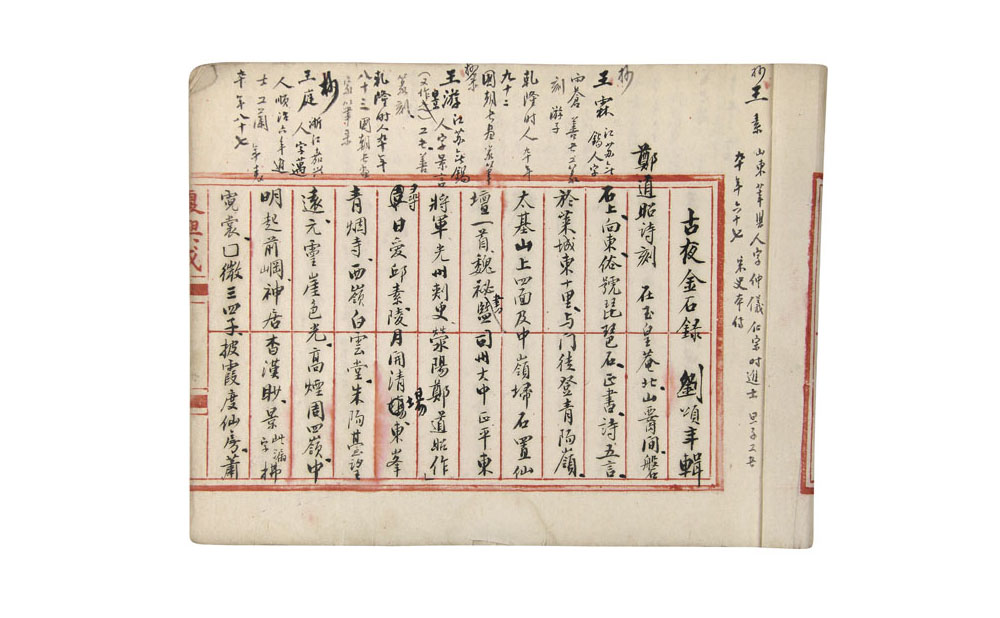 抄 王素 山東莘縣人字仲儀仁宗時進士旦子工書
卒年六十七 宋史本傳
古夜金石録 劉頌年輯
鄭道昭詩刻 在玉皇庵北山罾间磐
石上向東俗號琵琶石正書詩五言
於萊城東十里与门徒登青陽嶺
太基山上四面及中嶺埽石置仙
壇一首魏祕書監司州大中正平東
將軍光州刺史滎陽鄭道昭作
尋日愛邱素陵月開清場東峯
青烟寺西嶺白雲堂朱陽臺望
遠元靈崖色光高煙周四嶺中
明起前嶹神居杳漢眇景此漏字拂
霓裳囗微三四子披霞度仙房蕭
抄
王霖 江苏無錫人字
雨蒼善
刻 游子
乾隆时人卒年
九十二
國朝
抄
王游 江苏無錫
人字景言
(又作之)工善
篆刻
乾隆时人卒年
八十三國朝
抄
王庭 浙江嘉興
人字邁
人順治六年進
士工
卒年八十七